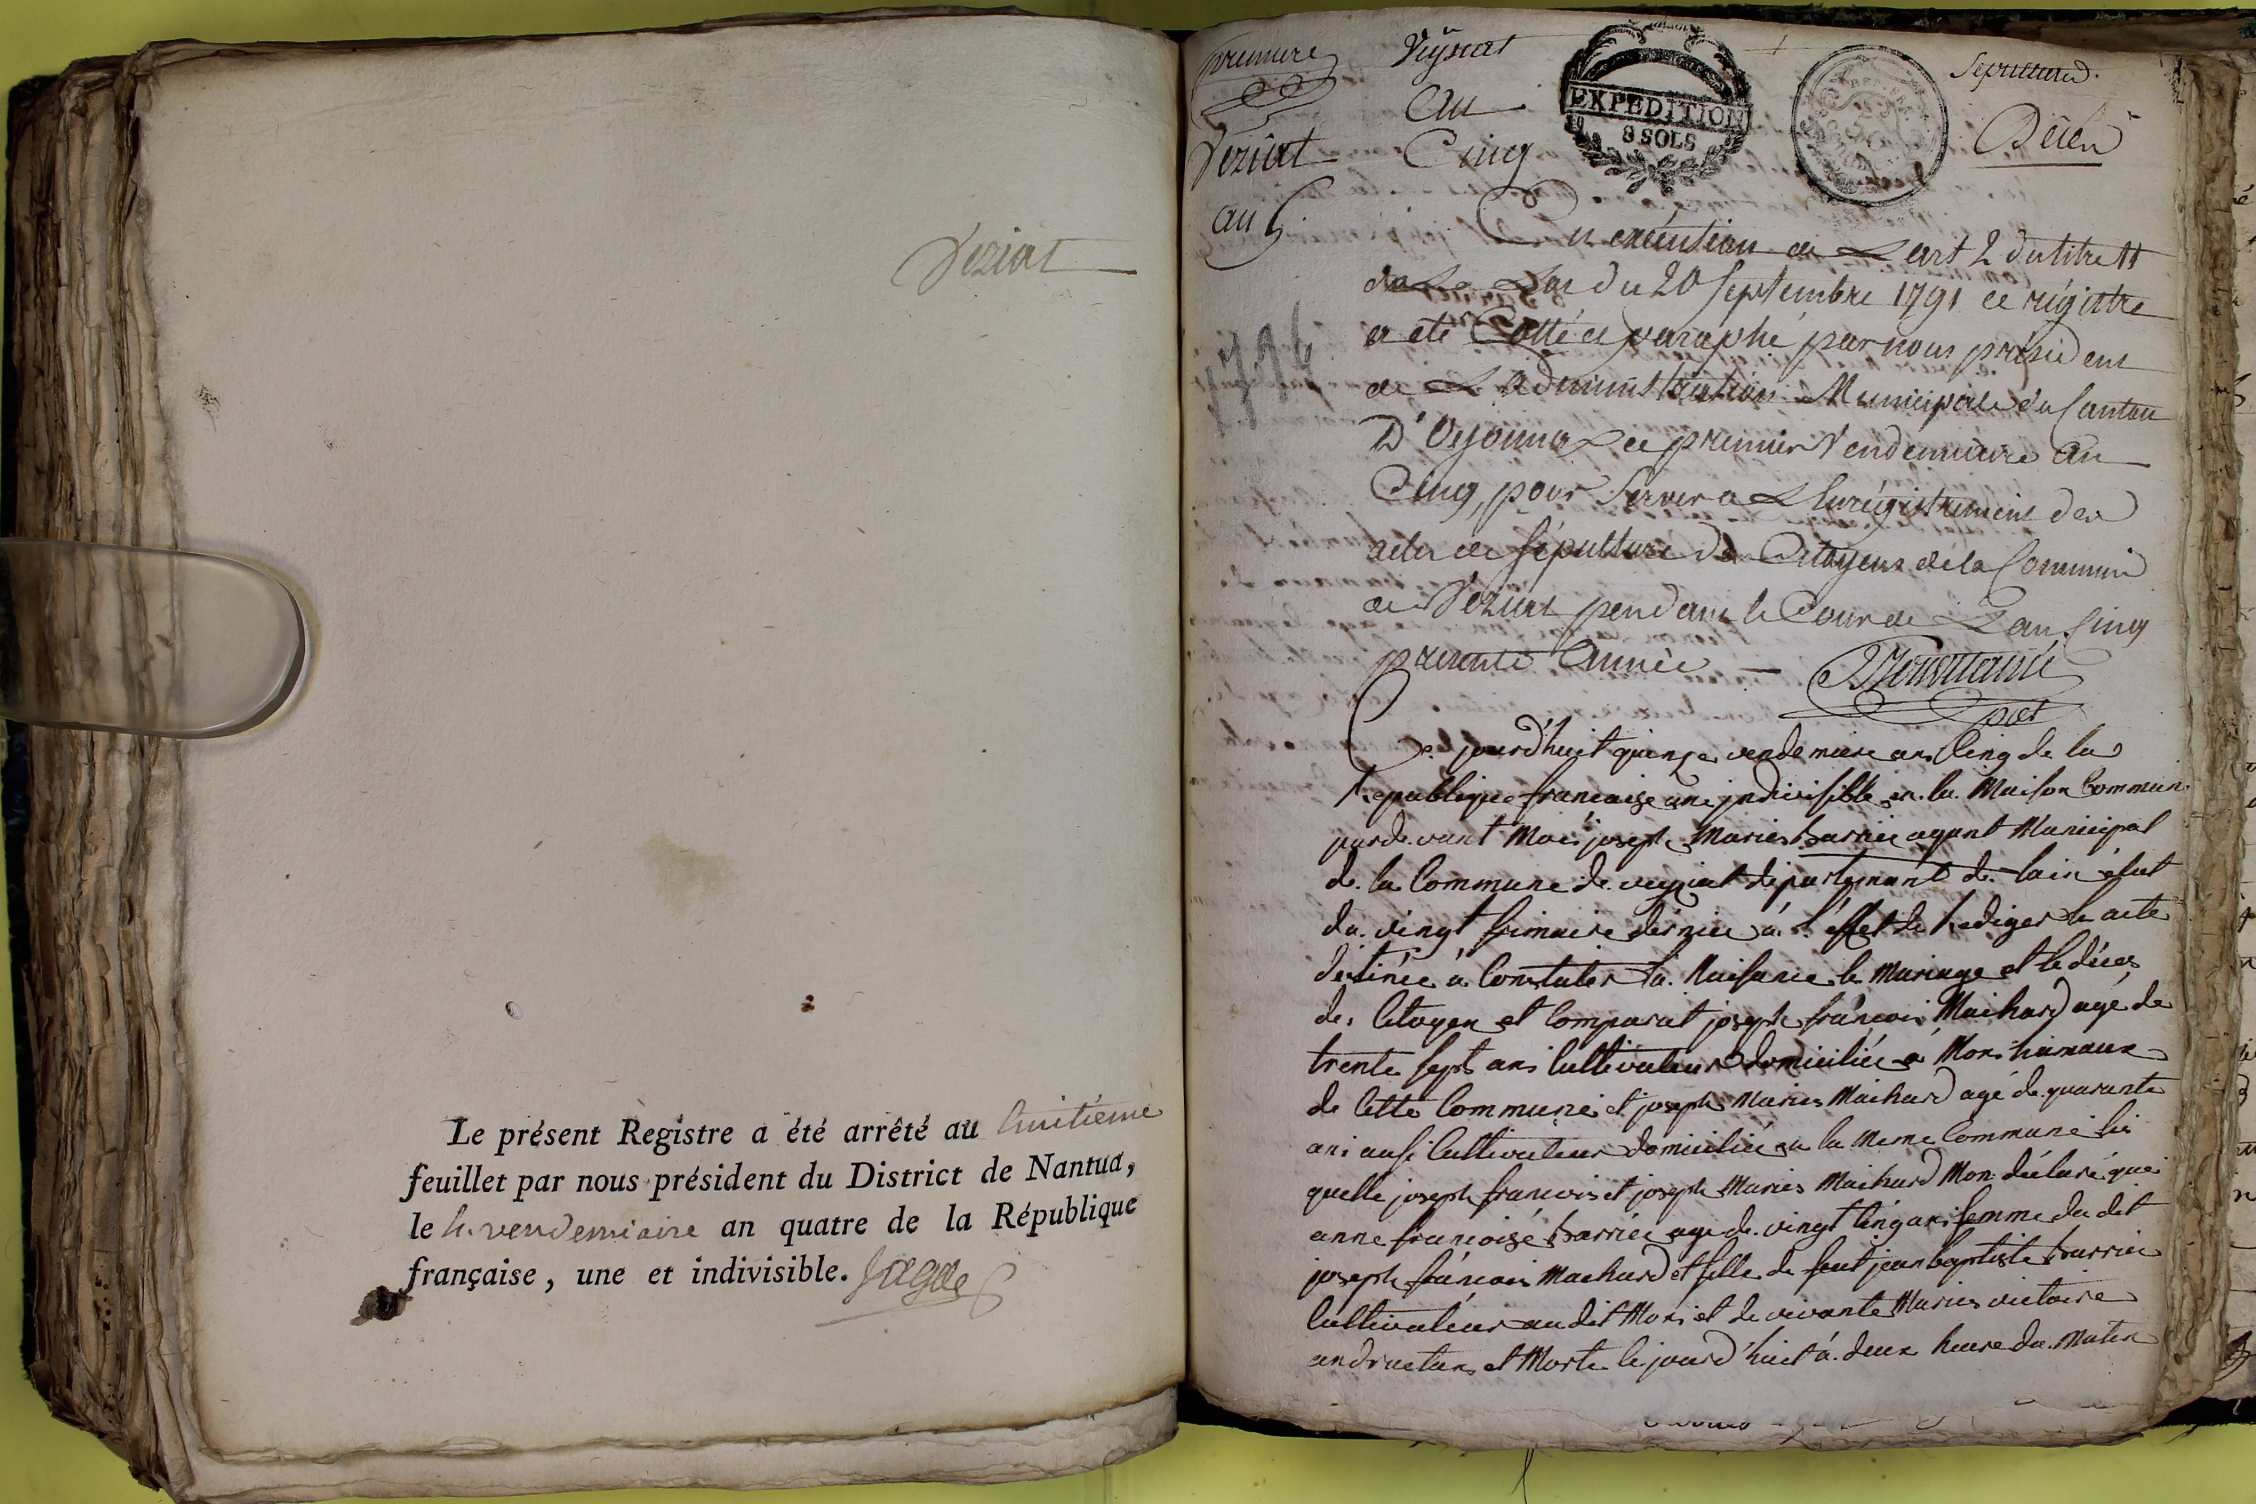 Veziat
Le présent Registre a été arrêté au huitieme
feuillet par nous président du District de Nantua,
le vendemiaire an quatre de la République
française, une et indivisible.
premiere
Veziat
an 5
Veyziat
An
Cinq
EXPEDITION
8 SOLS
Sepultures
Décès
En exécution de Lart 2 du titre 11
de La Loi du 20 Septembre 1791 ce régistre
a eté Cotté et paraphé par nous président
de L administration Municipale du Canton
D'Oyonna Le premier Vendemiaire an
Cinq, pour Servir a L Enrégistrement des
actes de Sépulture des Citoyens de la Commune
de Veziat pendant le Cour de L an Cinq
presente année
pdt
Ce jourd'huit quinze vendemiere an Cinq de la
Republique francaise une jndivisible en la Maison Commun
parde vant Moi joseph Marie barrie agant Municipal
de la Commune de veyziat départemant de lain élut
du vingt frimaire dernier à l'éffet de Rediger le acte
déstinée à Constater la Naisance le Mariage et le décés
des Citoyen et Comparut joseph francois Maihard agé de
trente sept ans Cultivateur domiciliée a
de Cette Commune et joseph Marie Maihard agé de quarante
ans ausi Cultivateur domiciliée en la Meme Commune les
quelle joseph francois et joseph Marie Maihard Mon déclaré que
anne francoise barrie age de vingt Cinq ans femme du dit
joseph francois Maihard et fille de feut jean baptiste barrie
Cultivateur au dit Mons et de vivante Marie victoire
et Morte le jourd'huit à deux heure du Matin